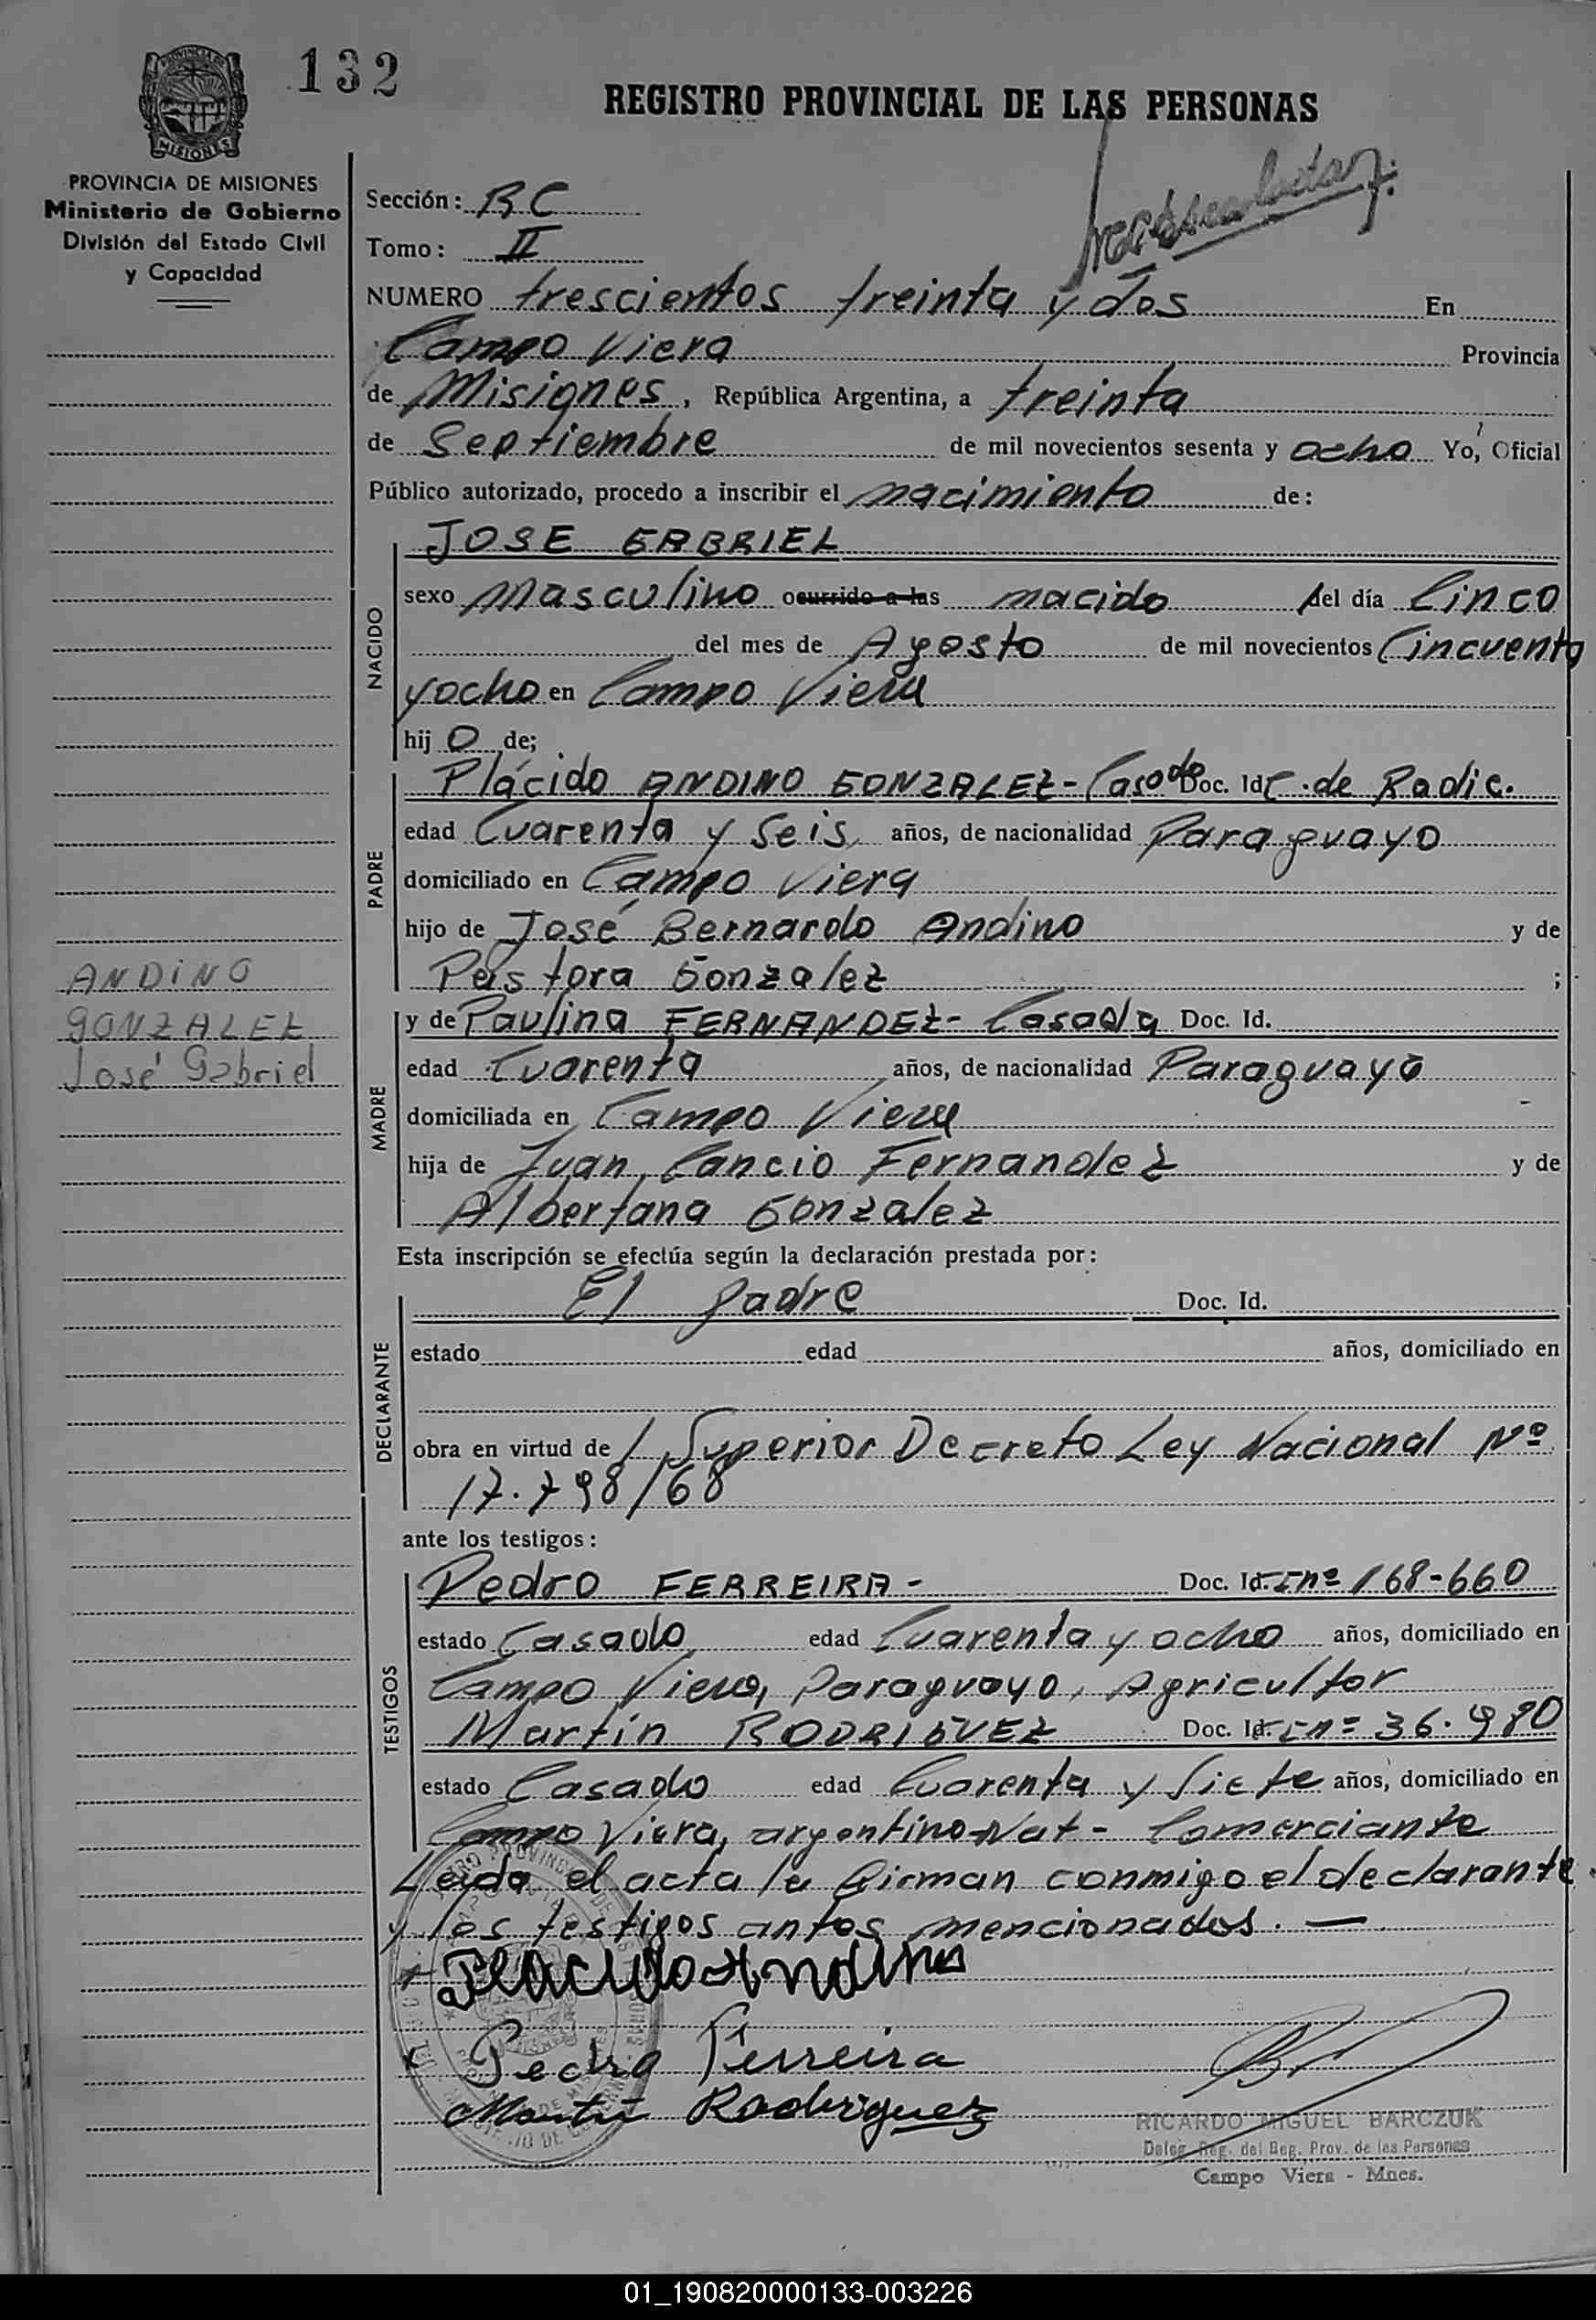 132
REGISTRO PROVINCIAL DE LAS PERSONAS
PROVINCIA DE MISIONES
Ministerio de Gobierno
División del Estado Civil
y Capacidad
Sección: BC
Tomo: II
NUMERO trescientos treinta y dos En
Campo Viera Provincia
de Misiones, República Argentina, a treinta
de Septiembre de mil novecientos sesenta y ocho Yo, Oficial
Público autorizado, procedo a inscribir el nacimiento de:
NACIDO
JOSE GABRIEL
sexo Masculino ocurrido a las nacido del día Cinco
del mes de Agosto de mil novecientos Cincuenta
y ocho en Campo Viera
hij o de;
PADRE
Plácido ANDINO GONZALEZ - Casado Doc. Id C. de Radic.
edad Cuarenta y Seis, años, de nacionalidad Paraguayo
domiciliado en Campo Viera
hijo de José Bernardo Andino y de
Pastora Gonzalez ;
ANDINO
GONZALEZ
José Gabriel
MADRE
y de Paulina FERNANDEZ - Casada Doc. Id.
edad Cuarenta años, de nacionalidad Paraguaya
domiciliada en Campo Viera
hija de Juan Cancio Fernandez y de
Albertana Gonzalez
Esta inscripción se efectúa según la declaración prestada por:
DECLARANTE
El padre Doc. Id.
estado edad años, domiciliado en
obra en virtud de l Superior Decreto Ley Nacional Nº
17.798/68
ante los testigos:
TESTIGOS
Pedro FERREIRA - Doc. Id. nº 168-660
estado Casado edad Cuarenta y ocho años, domiciliado en
Campo Viera, Paraguayo, Agricultor
Martín RODRIGUEZ Doc. Id. nº 36.980
estado Casado edad Cuarenta y Siete años, domiciliado en
Campo Viera, argentino Nat - Comerciante
Leida el acta la firman conmigo el declarante
y los testigos antes mencionados. —
Placido Andino
Pedro Ferreira
Martin Rodriguez
RICARDO MIGUEL BARCZUK
Deleg. Reg. del Reg. Prov. de las Personas
Campo Viera - Mnes.
01_190820000133-003226